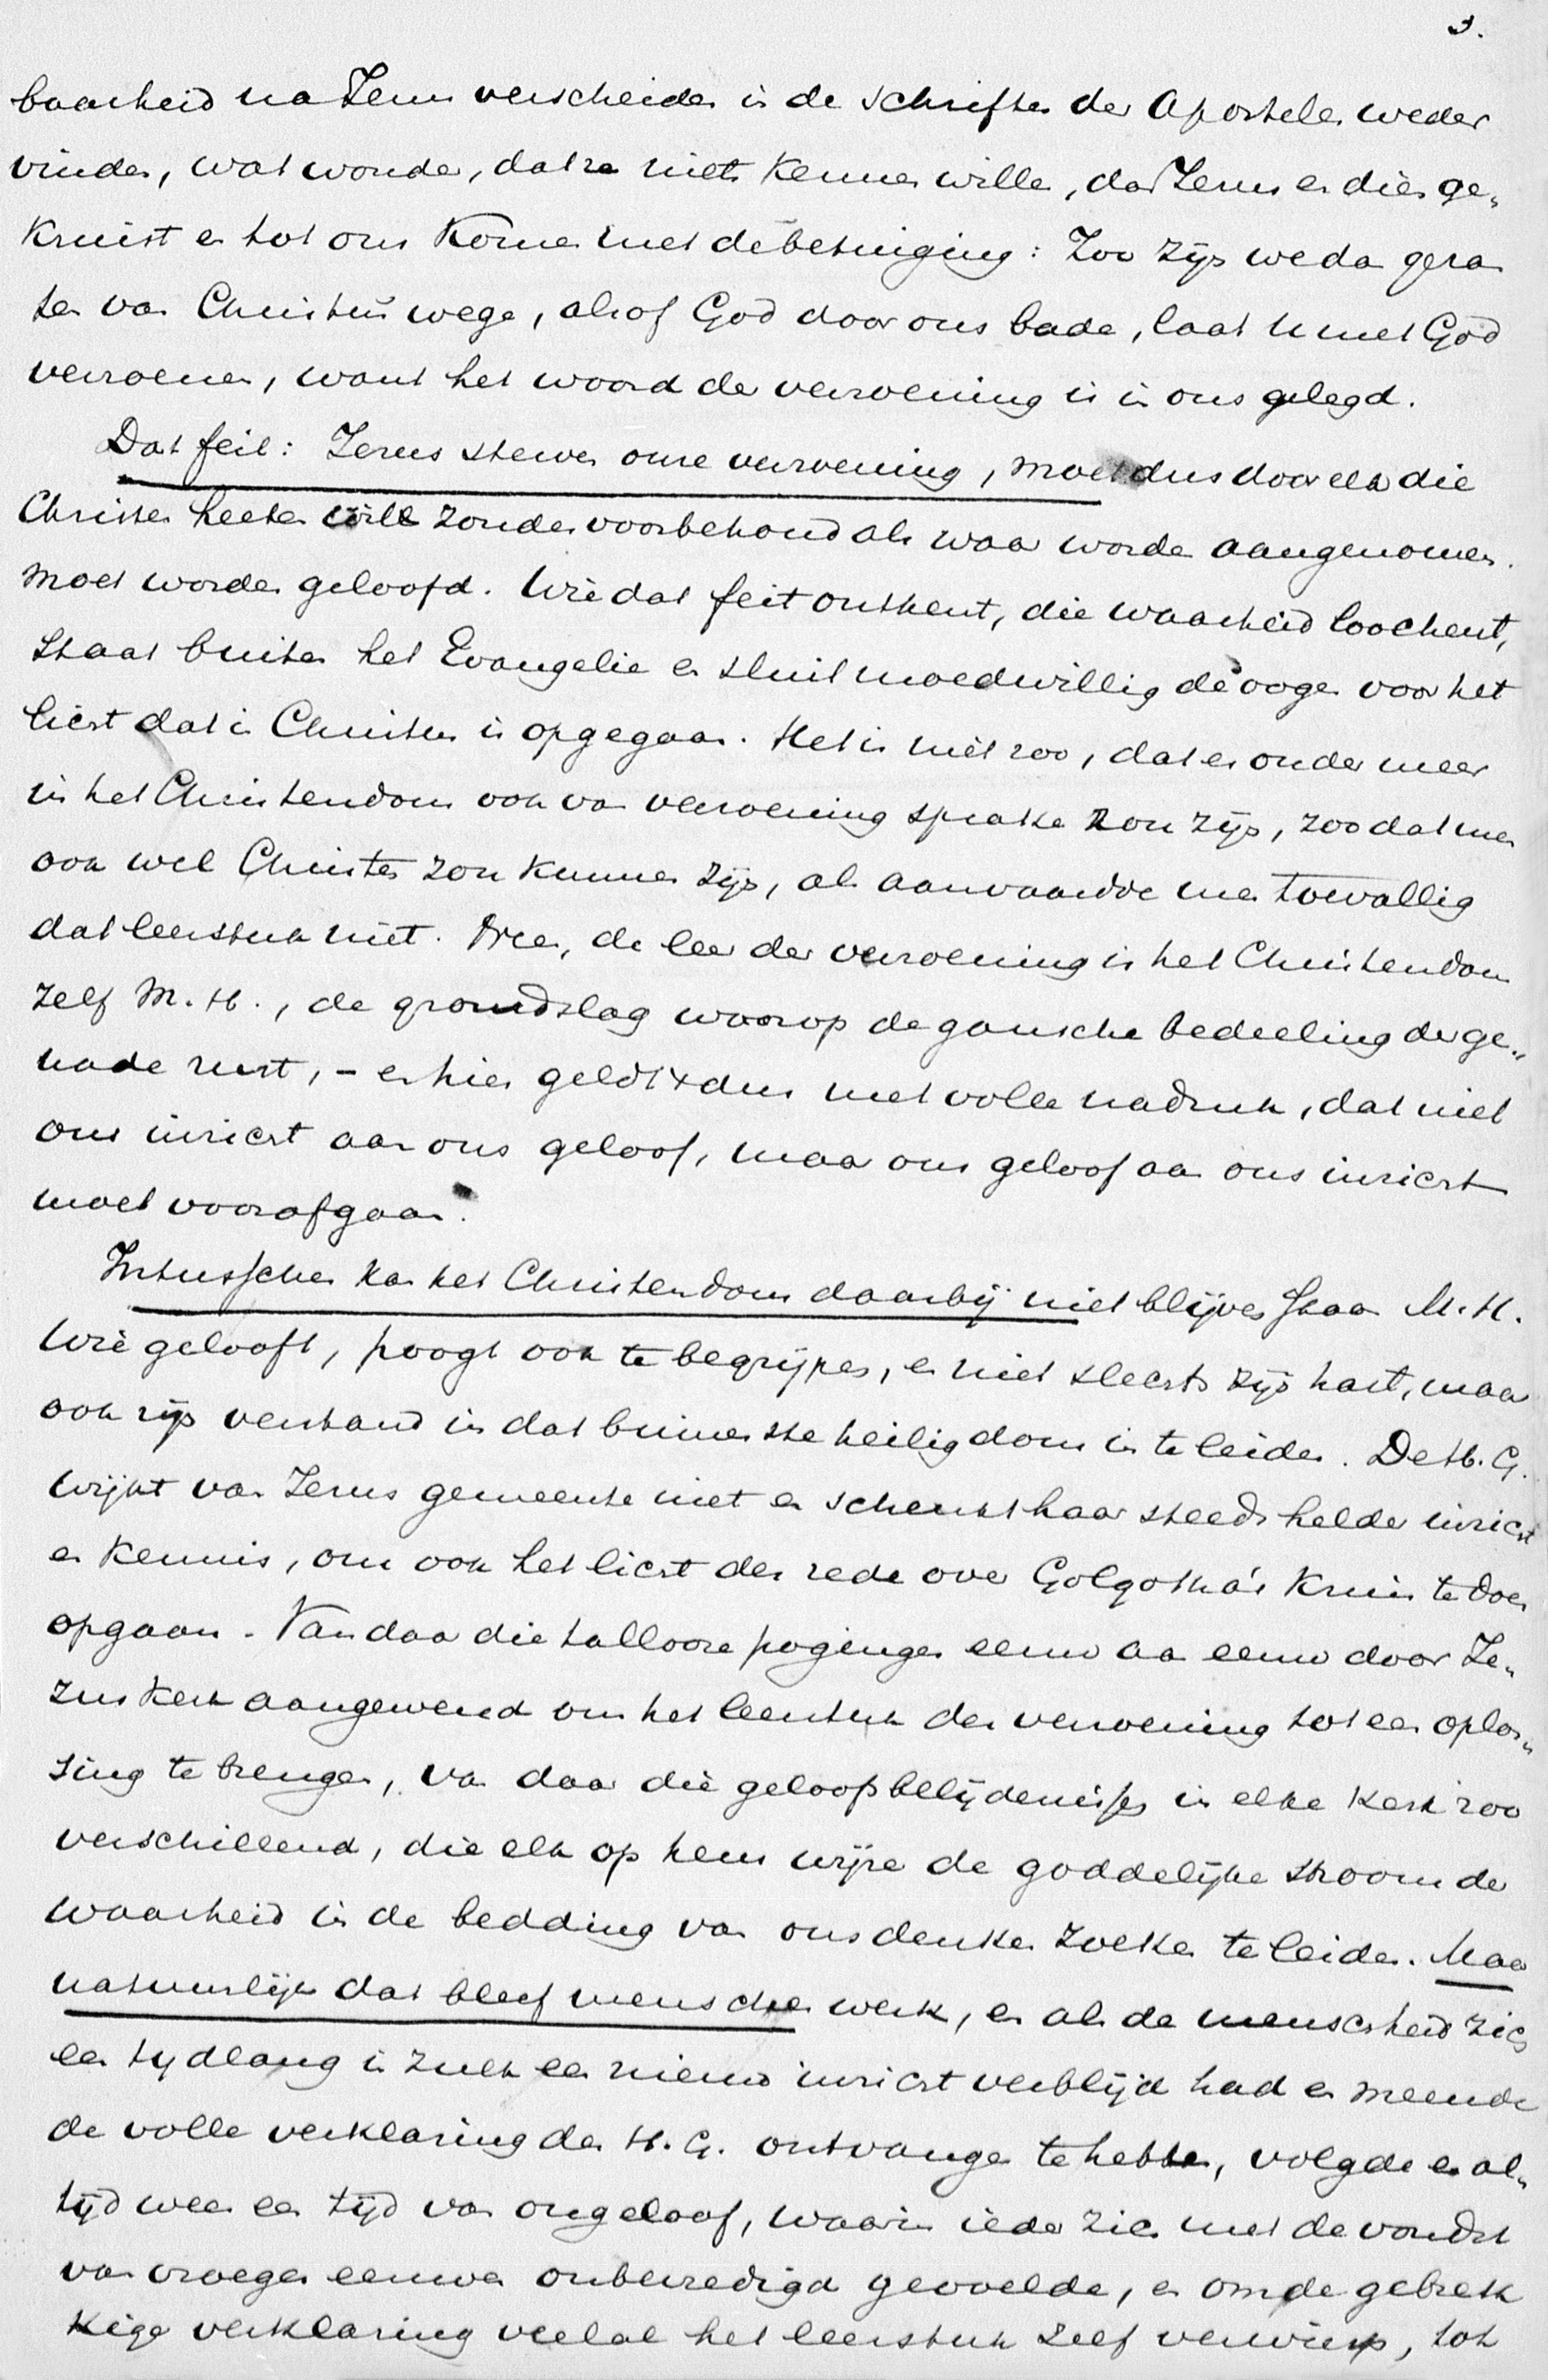 3.
baarheid na Jezus verscheiden in de schriften der Apostelen weder
vinden, wat wonder, dat ze niets kennen willen, dan Jezus en dien ge„
kruist en tot ons komen met de betuiging: Zoo zijn we dan gezan
ten van Christus wege, alsof God door ons bade, laat u met God
verzoenen, want het woord der verzoening is in ons gelegd.
Dat feit: Jezus sterven onze verzoening, moet dus door elk die
Christen heeten will zonder voorbehoud als waar worden aangenomen.
moet worden geloofd. Wie dat feit ontkent, die waarheid loochent,
staat buiten het Evangelie en sluit moedwillig de oogen voor het
licht dat in Christus is opgegaan. Het is niet zoo, dat er onder meer
in het Christendom ook van verzoening sprake zou zijn, zoodat men
ook wel Christen zou kunnen zijn, al aanvaardde men toevallig
dat leerstuk niet. Nee, de leer der verzoening is het Christendom
zelf M. H., de grondslag waarop de gansche bedeeling der ge„
nade rust, – en hier geldt dus met volle nadruk, dat niet
ons inzicht aan ons geloof, maar ons geloof aan ons inzicht
moet voorafgaan.
Intusschen kan het Christendom daarbij niet blijven staan M. H.
Wie gelooft, poogt ook te begrijpen, en niet slechts zijn hart, maar
ook zijn verstand in dat binnenste heiligdom in te leiden. De H. G.
wijkt van Jezus gemeente niet en schenkt haar steeds helder inzicht
en kennis, om ook het licht der rede over Golgotha's kruis te doen
opgaan. Van daar die tallooze pogingen eeuw aan eeuw door Je„
zus kerk aangewend om het leerstuk der verzoening tot een oplos„
sing te brengen, van daar die geloofsbelijdenissen in elke kerk zoo
verschillend, die elk op hem wijze de goddelijke stroom der
waarheid in de bedding van ons denken zoeken te leiden. Maar
natuurlijk dat bleef menschen werk, en als de menscheid zich
een tydlang in zulk een nieuw inzicht verblijd had en meende
de volle verklaring der H. G. ontvangen te hebben, volgde er al„
tijd weer een tijd van ongeloof, waarin ieder zich met de vondst
van vroeger eeuwen onbevredigd gevoelde, en om de gebrek
kige verklaring veelal het leerstuk zelf verwierp, tot